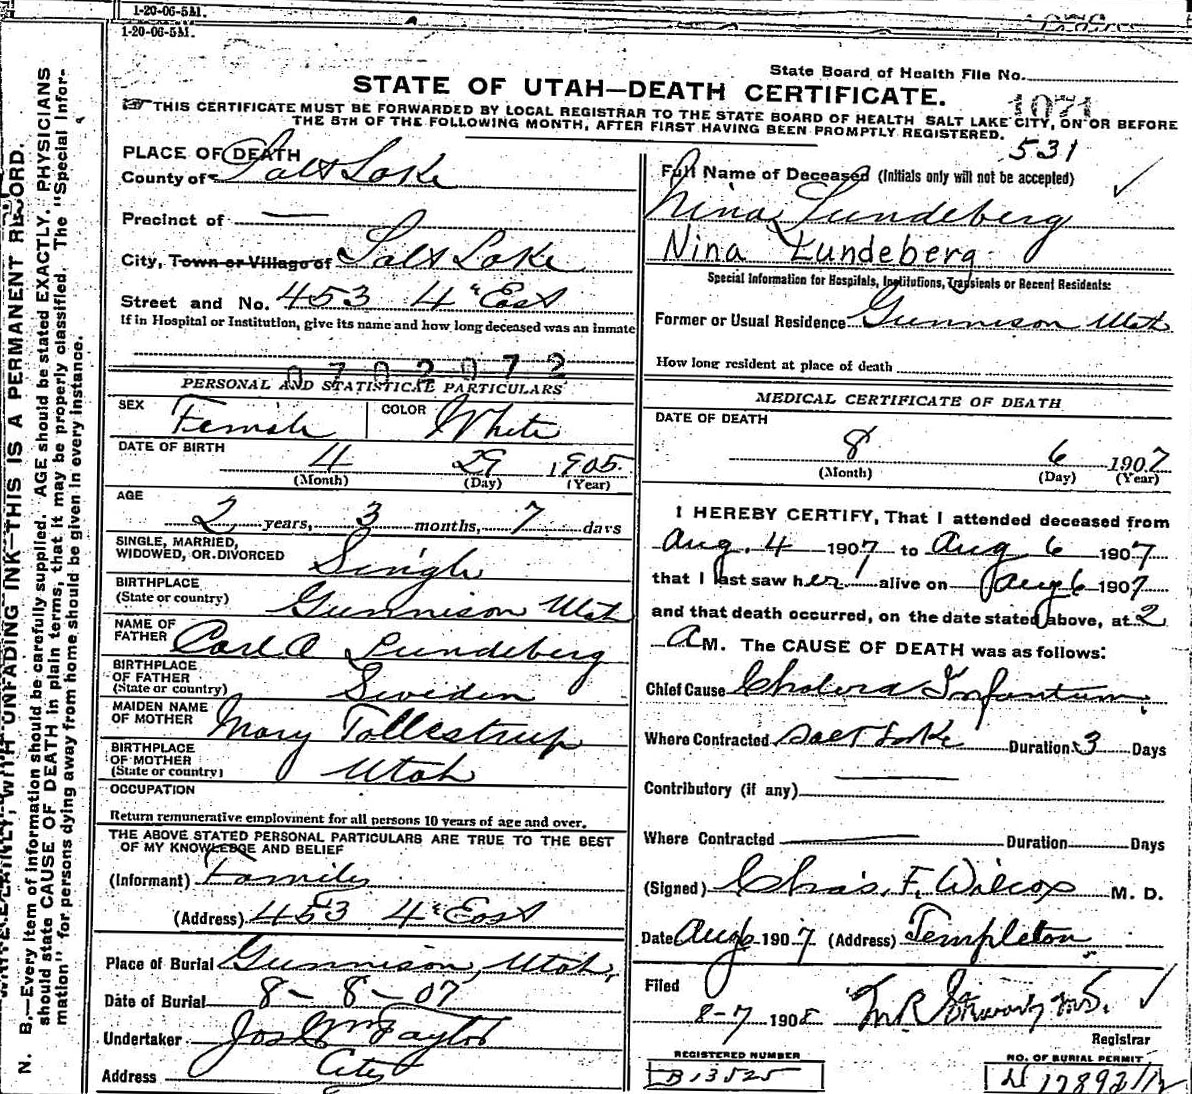 1-20-06-5M.
1-20-06-5M.
State Board of Health File No.
STATE OF UTAH—DEATH CERTIFICATE.
1071
THIS CERTIFICATE MUST BE FORWARDED BY LOCAL REGISTRAR TO THE STATE BOARD OF HEALTH SALT LAKE CITY, ON OR BEFORE
THE 8TH OF THE FOLLOWING MONTH, AFTER FIRST HAVING BEEN PROMPTLY REGISTERED.
531
PLACE OF DEATH
County of Salt Lake
Precinct of —
City, Town or Village of Salt Lake
Street and No. 453 4" East
If in Hospital or Institution, give its name and how long deceased was an inmate
0702072
PERSONAL AND STATISTICAL PARTICULARS
SEX Female COLOR White
DATE OF BIRTH
4 29 1905.
(Month) (Day) (Year)
AGE
2 years, 3 months, 7 days
SINGLE, MARRIED,
WIDOWED, OR DIVORCED Single
BIRTHPLACE
(State or country) Gunnison Utah
NAME OF
FATHER Carl A Lundeberg
BIRTHPLACE
OF FATHER
(State or country) Sweden
MAIDEN NAME
OF MOTHER Mary Tollestrup
BIRTHPLACE
OF MOTHER
(State or country) Utah
OCCUPATION
Return remunerative employment for all persons 10 years of age and over.
THE ABOVE STATED PERSONAL PARTICULARS ARE TRUE TO THE BEST
OF MY KNOWLEDGE AND BELIEF
(Informant) Family
(Address) 453 4" East
Place of Burial Gunnison, Utah,
Date of Burial 8-8-07
Undertaker Jos Wm Taylor
Address City
Full Name of Deceased (Initials only will not be accepted)
Nina Lundeberg
Nina Lundeberg
Special Information for Hospitals, Institutions, Transients or Recent Residents:
Former or Usual Residence Gunnison Utah
How long resident at place of death
MEDICAL CERTIFICATE OF DEATH
DATE OF DEATH
8 6 1907
(Month) (Day) (Year)
I HEREBY CERTIFY, That I attended deceased from
Aug. 4 1907 to Aug 6 1907
that I last saw her alive on Aug 6 1907
and that death occurred, on the date stated above, at 2
A M. The CAUSE OF DEATH was as follows:
Chief Cause Cholera Infantum
Where Contracted Salt Lake Duration 3 Days
Contributory (if any) —
Where Contracted — Duration Days
(Signed) Chas. F. Wilcox M. D.
Date Aug 6 1907 (Address) Templeton
Filed
8-7 1908
Registrar
REGISTERED NUMBER
B 13525
NO. OF BURIAL PERMIT
N. B.—Every item of information should be carefully supplied. AGE should be stated EXACTLY. PHYSICIANS
should state CAUSE OF DEATH in plain terms, that it may be properly classified. The "Special Infor-
mation" for persons dying away from home should be given in every instance.
WITH UNFADING INK—THIS IS A PERMANENT RECORD.